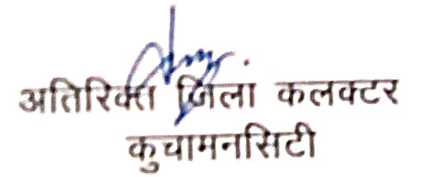 अतिरिक्त जिला कलक्टर
कुचामनसिटी